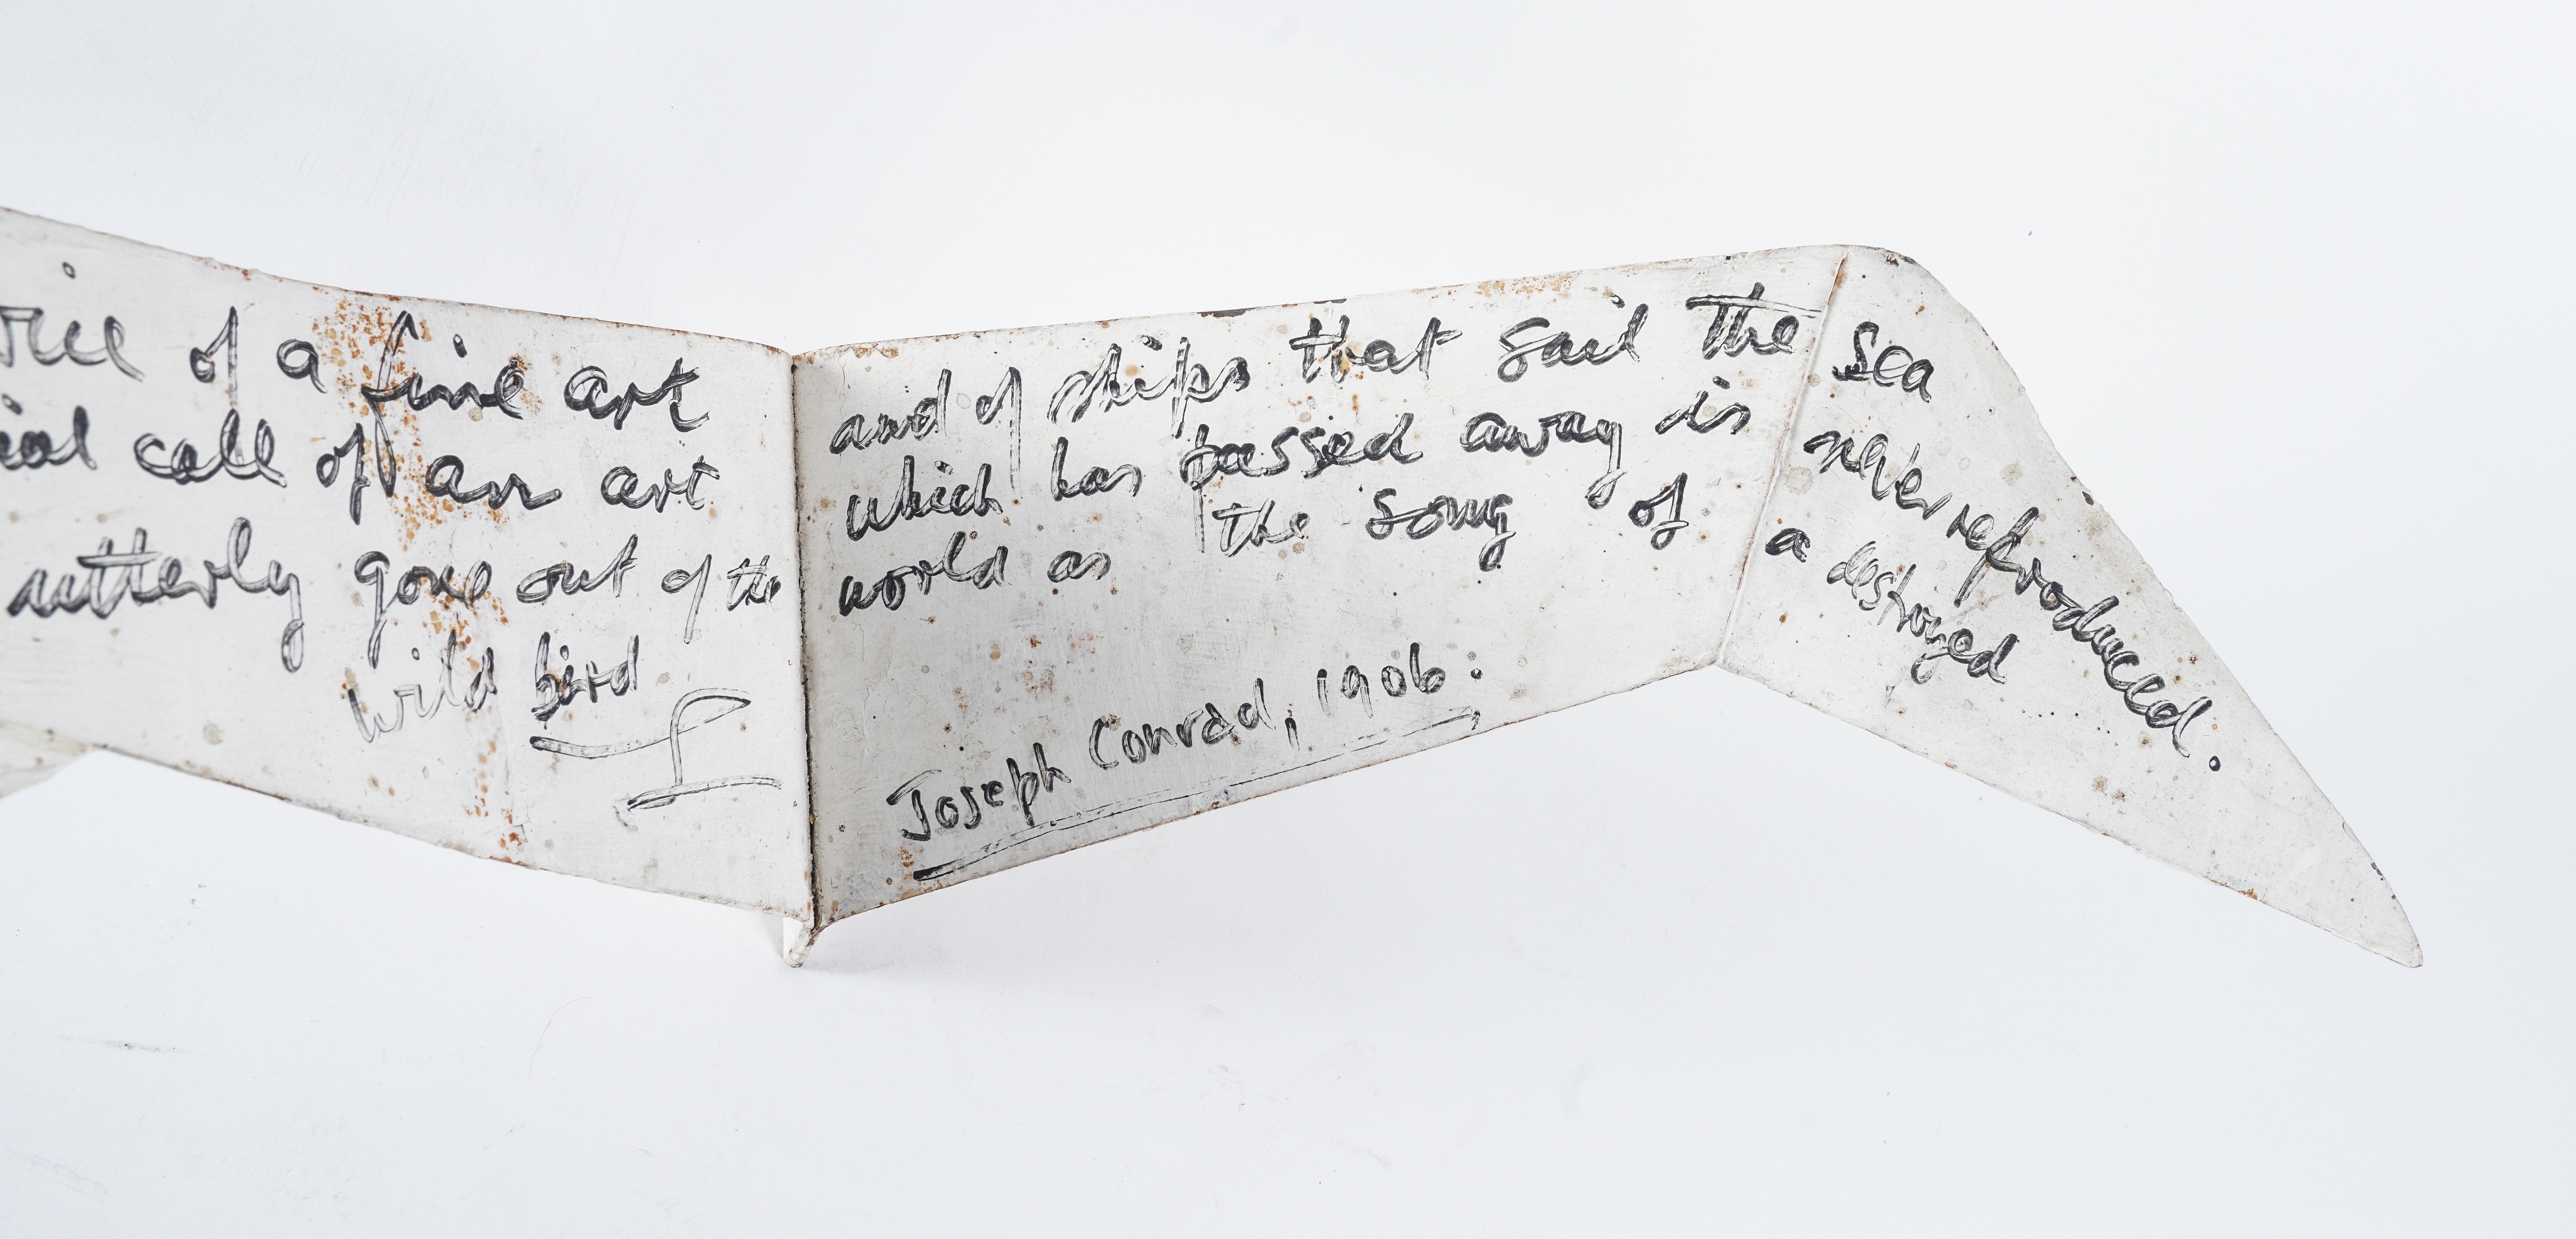 of a fine art and of ships that sail the sea
call of an art which has passed away is never reproduced.
utterly gone out of the world as the song of a destroyed
wild bird
Joseph Conrad, 1906.